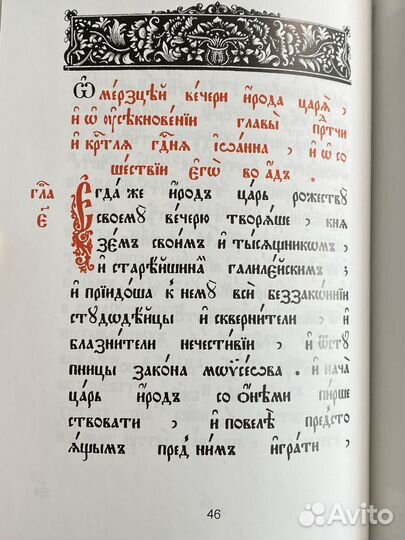 Ѡ ме́рзцей ве́чери и҆́рода царѧ̀,
и҆ ѡ҆ ᲂу҆сѣкнове́нїи главы̀ прⷣтчи
и҆ крⷭ҇тлѧ гдⷭ҇нѧ і҆ѡа́нна, и҆ ѡ҆ со
ше́ствїи є҆гѡ̀ во а҆́дъ.
гла
є҃
Є҆гда́ же и҆́родъ ца́рь рожествꙋ̀
своемꙋ̀ ве́черю творѧ́ше, кнѧ
зе́мъ свои́мъ и҆ ты́сѧщникомъ,
и҆ старѣ́йшинаⷨ галиле́йскимъ.
и҆ прїидо́ша к немꙋ̀ всѝ беззако́ннїи
стꙋдодѣ́йцы и҆ скверни́тели, и҆
блазни́тели нечести́вїи, и҆ ѿстꙋ
пницы зако́на мѡѷсе́ѡва. и҆ нача̀
ца́рь и҆́родъ со ѻ҆нѣ́ми пи́рше
ствовати, и҆ повелѣ̀ предсто
ѧ́щымъ пред ни́мъ и҆гра́ти,
46
Avito